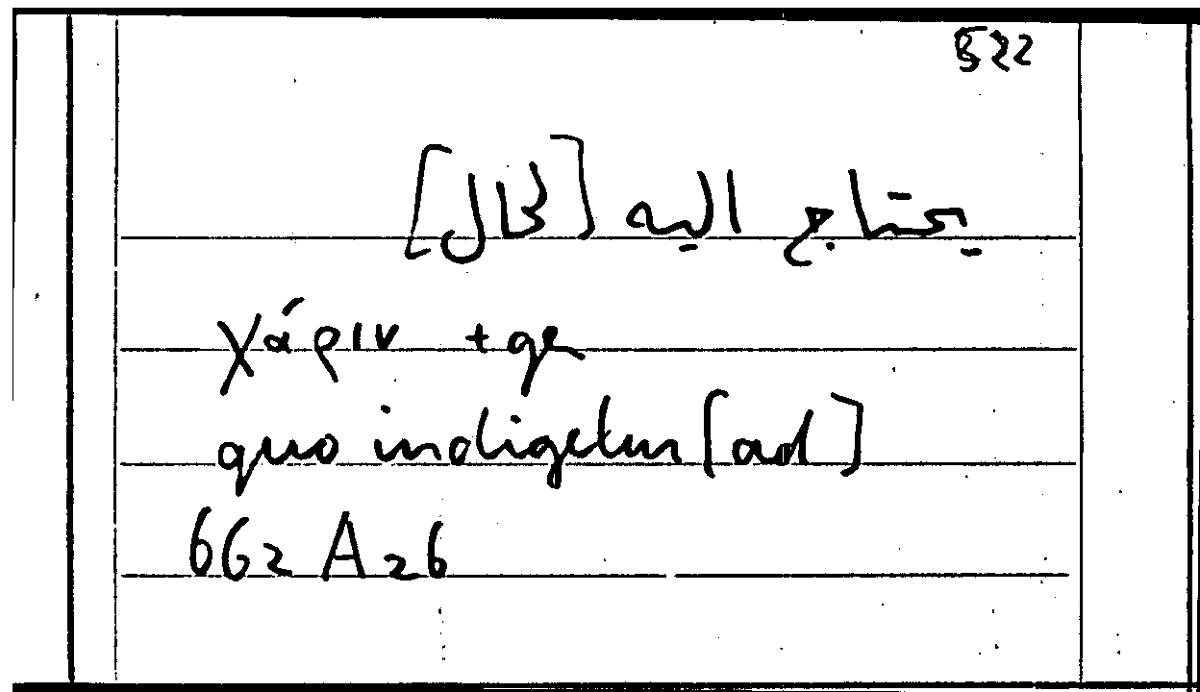 522
يحتاج اليه [لحال]
χάριν +ge
quo indigetur [ad]
662 A 26